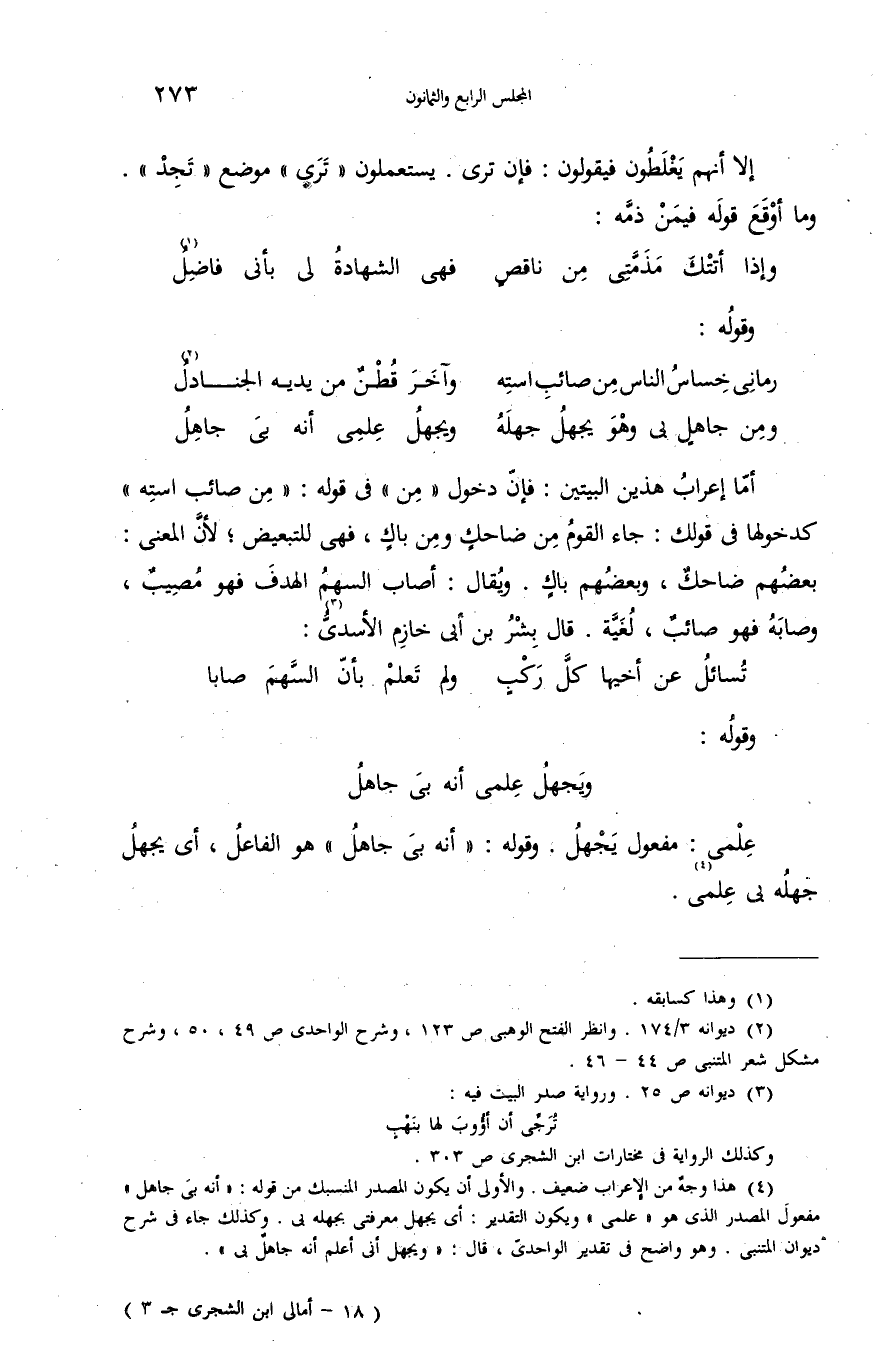 المجلس الرابع والثمانون ٢٧٣
إلا أنهم يَغْلَطُون فيقولون : فإن ترى . يستعملون « تَرَي » موضع « تَجِدْ » .
وما أوْقَعَ قولَه فيمَنْ ذمَّه :
وإذا أتتْكَ مَذَمَّتِى مِن ناقصٍ فهى الشهادةُ لى بأنى فاضِلُ(١)
وقولُه :
رمانِى خِساسُ الناس مِن صائبِ استِه وآخَرَ قُطْنٌ من يديه الجنادلُ(٢)
ومِن جاهلٍ بى وهْوَ يجهلُ جهلَهُ ويجهلُ عِلمِى أنه بىَ جاهِلُ
أمّا إعرابُ هذين البيتين : فإنّ دخول « مِن » فى قوله : « مِن صائب استِه »
كدخولها فى قولك : جاء القومُ مِن ضاحكٍ ومِن باكٍ ، فهى للتبعيض ؛ لأنَّ المعنى :
بعضُهم ضاحكٌ ، وبعضُهم باكٍ . ويُقال : أصاب السهمُ الهدفَ فهو مُصِيبٌ ،
وصابَهُ فهو صائبٌ ، لُغَيَّة . قال بِشْرُ بن أبى خازِم الأسدىُّ(٣) :
تُسائلُ عن أخيها كلَّ رَكْبٍ ولم تَعلمْ بأنّ السَّهمَ صابا
وقولُه :
ويَجهلُ عِلمى أنه بىَ جاهلُ
عِلْمى : مفعول يَجْهلُ . وقوله : « أنه بىَ جاهلُ » هو الفاعلُ ، أى يجهلُ
جَهلُه بى عِلمى(٤) .
(١) وهذا كسابقه .
(٢) ديوانه ١٧٤/٣ . وانظر الفتح الوهبى ص ١٢٣ ، وشرح الواحدى ص ٤٩ ، ٥٠ ، وشرح
مشكل شعر المتنبى ص ٤٤ – ٤٦ .
(٣) ديوانه ص ٢٥ . ورواية صدر البيت فيه :
تُرَجِّى أن أؤُوبَ لها بنَهْبٍ
وكذلك الرواية فى مختارات ابن الشجرى ص ٣٠٣ .
(٤) هذا وجهٌ من الإعراب ضعيف . والأولى أن يكون المصدر المنسبك من قوله : « أنه بىَ جاهل »
مفعولَ المصدر الذى هو « علمى » ويكون التقدير : أى يجهل معرفتى بجهله بى . وكذلك جاء فى شرح
ديوان المتنبى . وهو واضح فى تقدير الواحدىّ ، قال : « ويجهل أنى أعلم أنه جاهلٌ بى » .
( ١٨ – أمالى ابن الشجرى جـ ٣ )